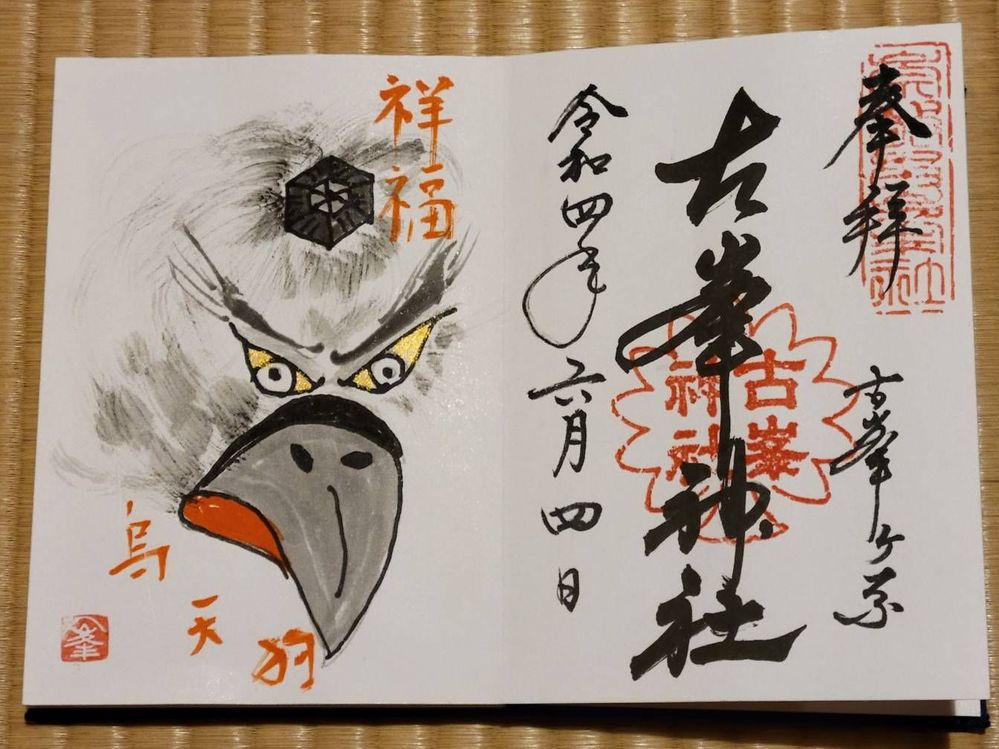 奉拝
古峯ヶ原
古峯神社
古峯
神社
令和四年六月四日
祥福
烏天狗
峯